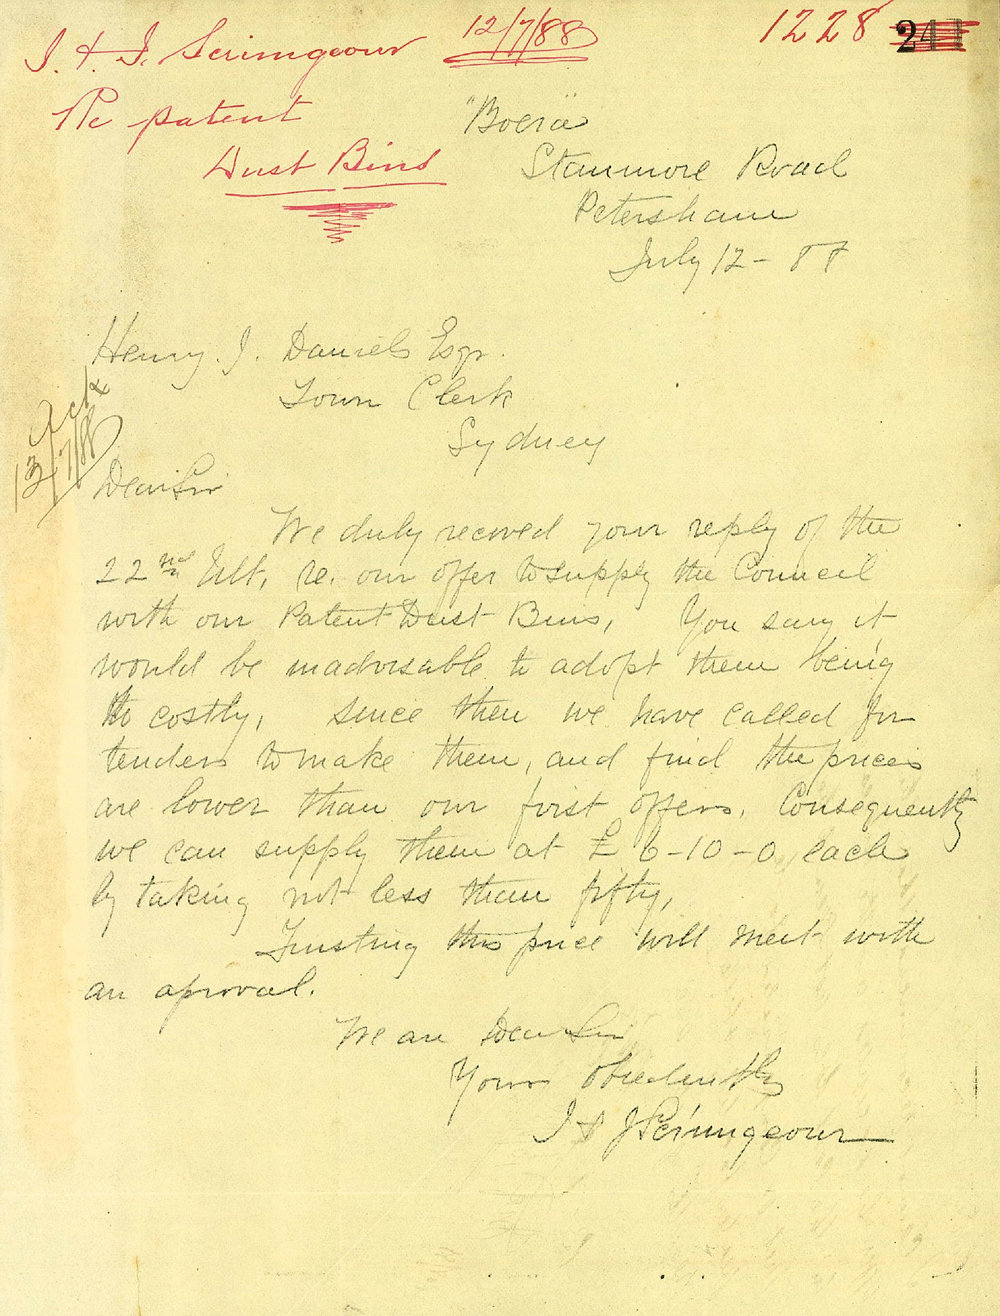 J. & J. Scrimgeour 12/7/88 1228 241
Re patent
Dust Bins
Stanmore Road
Petersham
July 12 - 88
Henry J. Daniels Esqr.
Town Clerk
Sydney
Ack
13/7/88
Dear Sir
We duly receved your reply of the
22nd Ult, re. our offer to supply the Council
with our Patent Dust Bins, You say it
would be inadvisable to adopt them being
to costly, since then we have called for
tenders to make them, and find the prices
are lower than our first offers. Consequently
we can supply them at £ 6-10-0 each
by taking not less than fifty,
Trusting this price will meet with
an aproval.
We are Dear Sir
Yours Obediently
J & J Scrimgeour